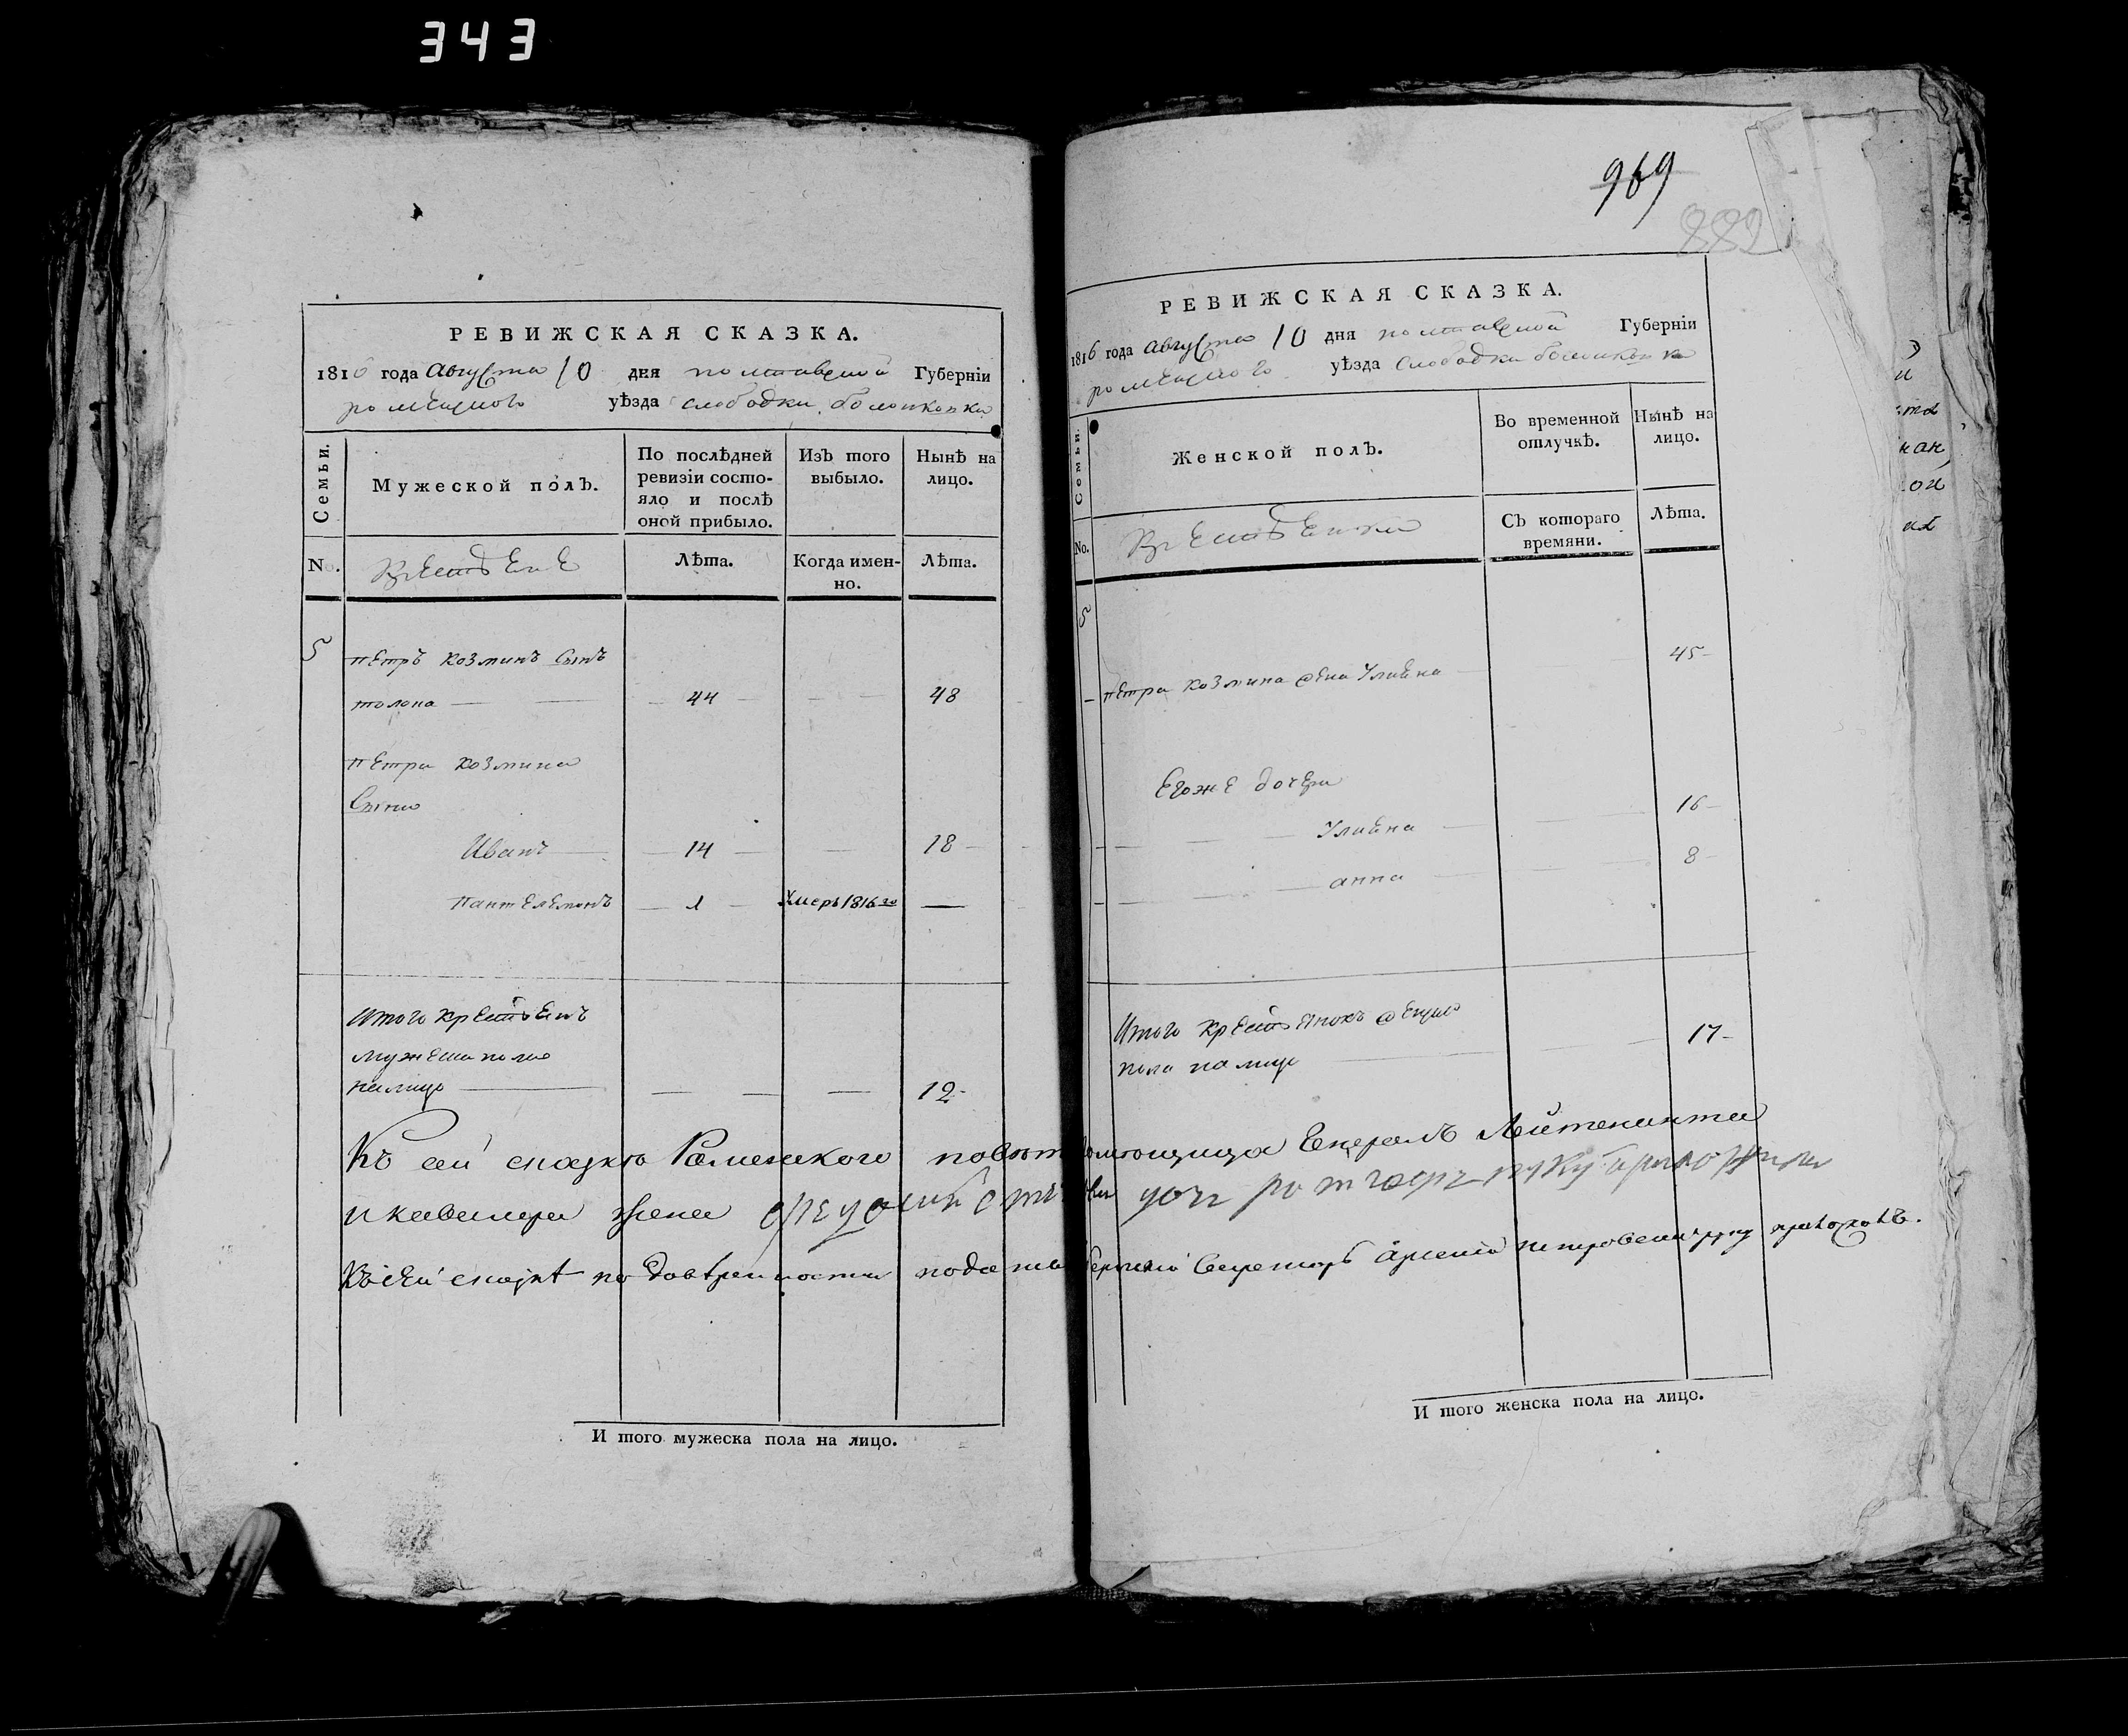 343
РЕВИЖСКАЯ СКАЗКА.
1816 года августа 10 дня полтавской Губерніи
роменского уѣзда слободки
Семьи.
Мужеской полъ.
По послѣдней ревизіи состо-
яло и послѣ
оной прибыло.
Изъ того
выбыло.
Нынѣ на
лицо.
No.
Лѣта.
Когда имен-
но.
Лѣта.
5
петръ козминъ сынъ
толока 44 48
петра козмина
сыны
Иванъ 14 18
пантелемонъ 1 умеръ 1816 го
итого крестьянъ
мужеска пола
налицо 12
И того мужеска пола на лицо.
969
882
РЕВИЖСКАЯ СКАЗКА.
1816 года августа 10 дня полтавской Губерніи
роменского уѣзда слободки
Семьи.
Женской полъ.
Во временной
отлучкѣ.
Нынѣ на
лицо.
No.
Съ котораго
времяни.
Лѣта.
5
петра козмина жена Улияна 45
егоже дочери
Улияна 16
анна 8
Итого крестьянокъ женска
пола на лицо 17
Къ сей сказкѣ Роменского
и кавалера жена руку приложила
Къ сей сказкѣ по довѣренности Секретарь руку приложилъ.
И того женска пола на лицо.